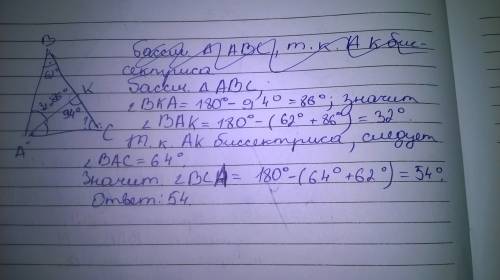 B
62°
K
86°
94°
A
?
C
Рассм. Δ ABC, т.к. AK бис-
сектриса
Рассм. Δ ABC;
∠BKA = 180° - 94° = 86°; значит
∠BAK = 180° - (62° + 86°) = 32°
Т.к. AK биссектриса, следует
∠BAC = 64°.
Значит ∠BCA = 180° - (64° + 62°) = 54°.
Ответ: 54